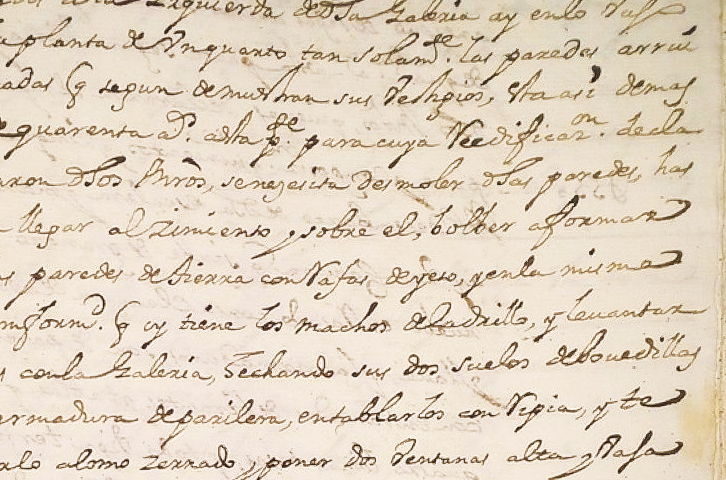 Izquierda de dha Galeria ay en lo Vaſ
planta de Vn quarto tan solamte. las paredes arrui
nadas q segun demuestran sus Vestigios, esta asi demas
quarenta as. a esta pte. para cuya Reedificazon. decla
raron dhos Mros, se nezesita Desmoler dhas paredes, has
llegar al zimiento y sobre el, bolber a formar
paredes de tierra con Rafas de yeso, y en la misma
conformd. q oy tiene los machos de Ladrillo, y levantar
con la Galeria, Techando sus dos suelos de bovedillas
armadura de parilera, entablarlos con Ripia, y te
alomo zerrado, y poner dos Ventanas alta y Vasa